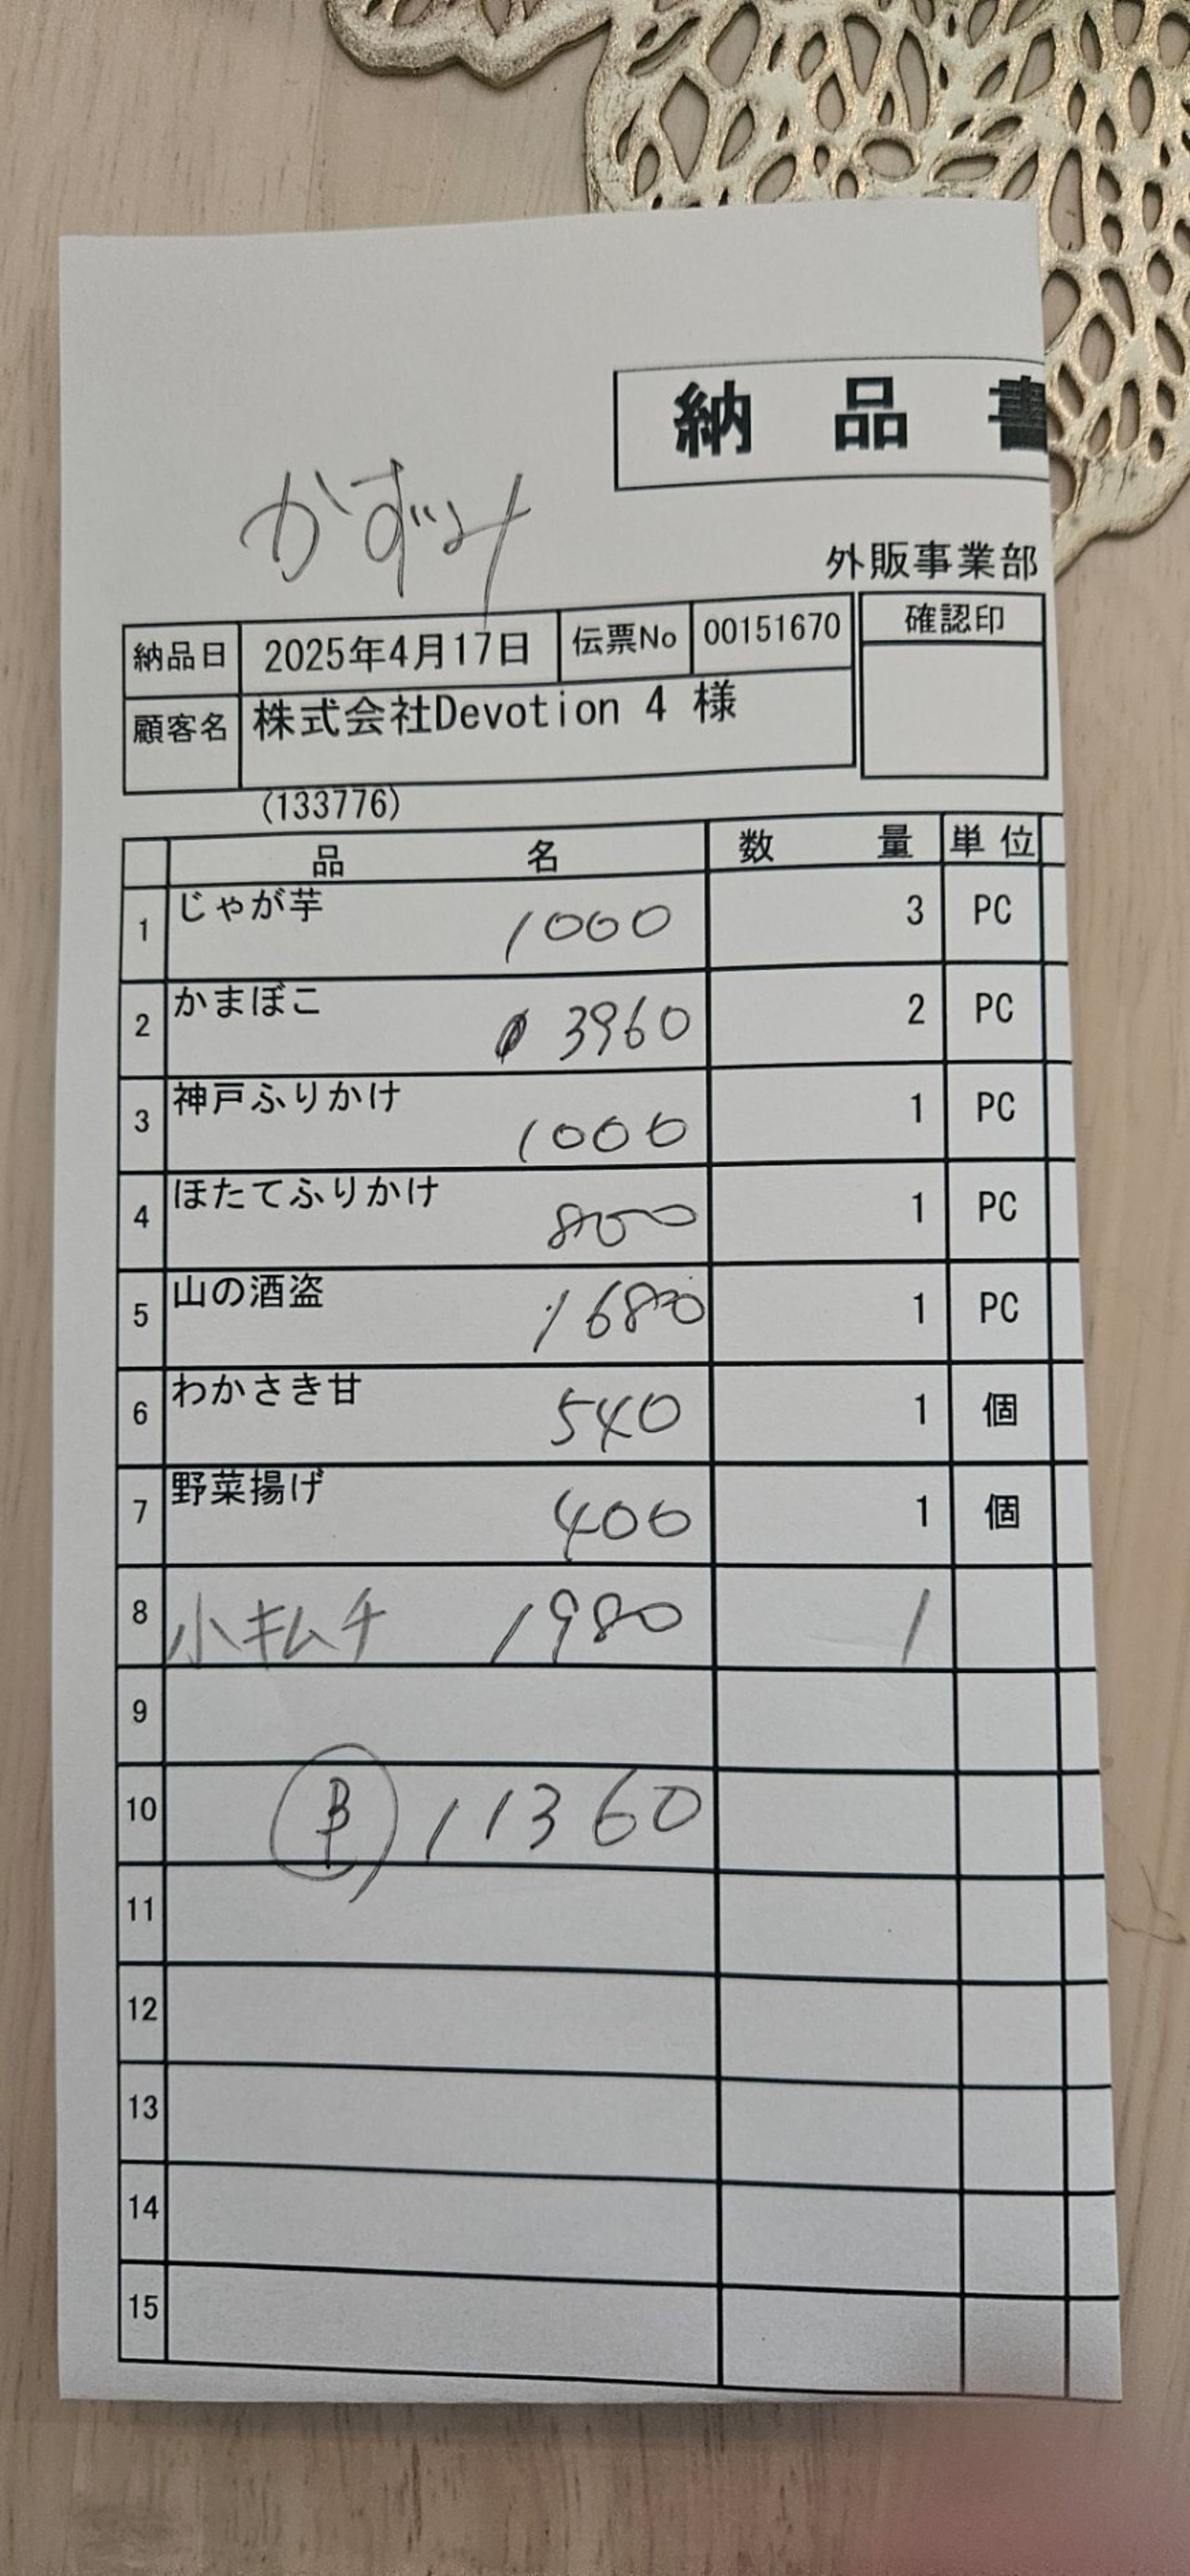 納品書
かずみ
外販事業部
納品日 2025年4月17日 伝票No 00151670 確認印
顧客名 株式会社Devotion 4 様
(133776)
品名 数量 単位
1 じゃが芋 1000 3 PC
2 かまぼこ 3960 2 PC
3 神戸ふりかけ 1000 1 PC
4 ほたてふりかけ 800 1 PC
5 山の酒盗 1680 1 PC
6 わかさき甘 540 1 個
7 野菜揚げ 400 1 個
8 小キムチ 1980 1
9
10 11360
11
12
13
14
15